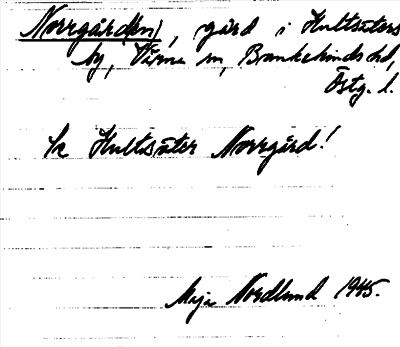 Norrgården), gård i Hultsäters
by, Värna sn, Bankekinds hd,
Östg. l.
Se Hultsäter Norrgård!
Maja Nordlund 1945.